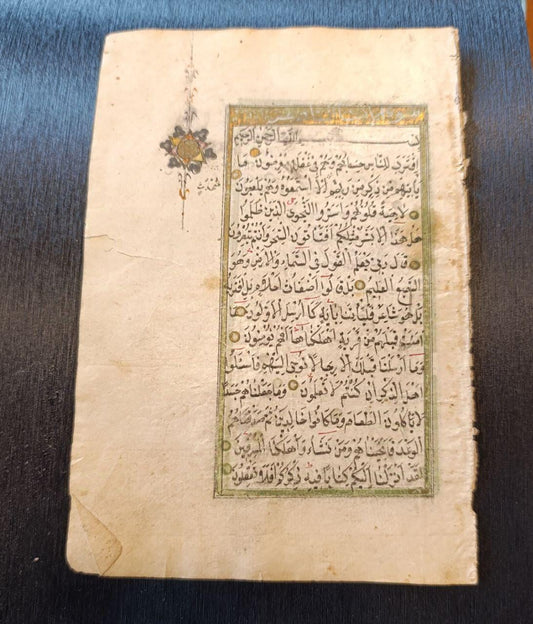 بسم الله الرحمن الرحيم
اقترب للناس حسابهم وهم في غفلة معرضون ما
يأتيهم من ذكر من ربهم الا استمعوه وهم يلعبون
محدث
لاهية قلوبهم واسروا النجوى الذين ظلموا
هل هذا الا بشر مثلكم افتأتون السحر وانتم تبصرون
قال ربي يعلم القول في السماء والارض وهو
السميع العليم بل قالوا اضغاث احلام بل افتريه
بل هو شاعر فليأتنا بآية كما ارسل الاولون ما
امنت قبلهم من قرية اهلكناها افهم يؤمنون
وما ارسلنا قبلك الا رجالا نوحي اليهم فاسئلوا
اهل الذكر ان كنتم لا تعلمون وما جعلناهم جسدا
لا يأكلون الطعام وما كانوا خالدين ثم صدقناهم
الوعد فانجيناهم ومن نشاء واهلكنا المسرفين
لقد انزلنا اليكم كتابا فيه ذكركم افلا تعقلون